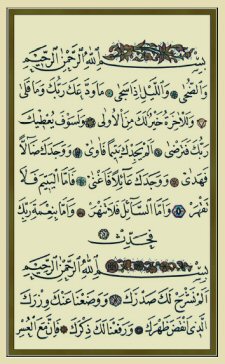 بِسْمِ اللَّهِ الرَّحْمَٰنِ الرَّحِيمِ
وَالضُّحَىٰ وَاللَّيْلِ إِذَا سَجَىٰ مَا وَدَّعَكَ رَبُّكَ وَمَا قَلَىٰ
وَلَلْآخِرَةُ خَيْرٌ لَكَ مِنَ الْأُولَىٰ وَلَسَوْفَ يُعْطِيكَ
رَبُّكَ فَتَرْضَىٰ أَلَمْ يَجِدْكَ يَتِيمًا فَآوَىٰ وَوَجَدَكَ ضَالًّا
فَهَدَىٰ وَوَجَدَكَ عَائِلًا فَأَغْنَىٰ فَأَمَّا الْيَتِيمَ فَلَا
تَقْهَرْ وَأَمَّا السَّائِلَ فَلَا تَنْهَرْ وَأَمَّا بِنِعْمَةِ رَبِّكَ
فَحَدِّثْ
بِسْمِ اللَّهِ الرَّحْمَٰنِ الرَّحِيمِ
أَلَمْ نَشْرَحْ لَكَ صَدْرَكَ وَوَضَعْنَا عَنْكَ وِزْرَكَ
الَّذِي أَنْقَضَ ظَهْرَكَ وَرَفَعْنَا لَكَ ذِكْرَكَ فَإِنَّ مَعَ الْعُسْرِ